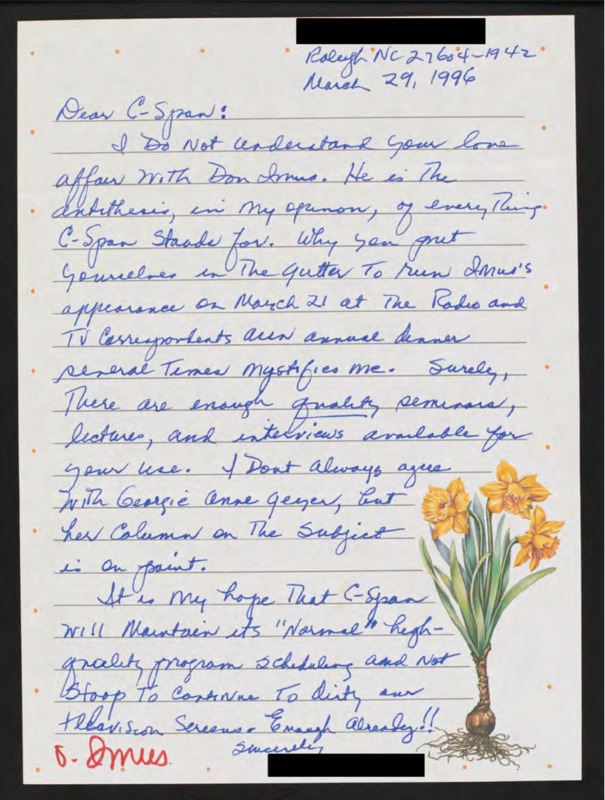 Raleigh NC 27604-1942
March 29, 1996
Dear C-Span:
I Do Not understand your love
affair with Don Imus. He is The
antithesis, in My opinion, of everyThing
C-Span Stands for. Why you put
yourselves in The gutter To run Imus's
appearance on March 21 at The Radio and
TV Correspondents annual dinner
several Times Mystifies me. Surely,
There are enough quality seminars,
lectures, and interviews available for
your use. I Dont always agree
with Georgie Anne Geyer, but
her Column on The Subject
is on point.
It is My hope That C-Span
will Maintain its "Normal" high-
quality program scheduling and Not
Stoop To Continue To dirty our
television Screens. Enough Already!!
Sincerely
D. Imus.